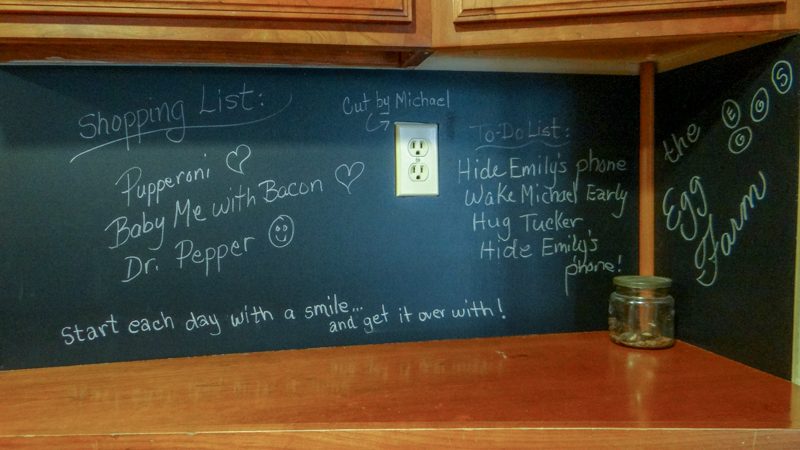 Shopping List:
Pupperoni
Baby Me with Bacon
Dr. Pepper
Start each day with a smile...
and get it over with!
Cut by Michael
To-Do List:
Hide Emily's phone
Wake Michael Early
Hug Tucker
Hide Emily's
phone!
the
EGGS
Egg
Farm